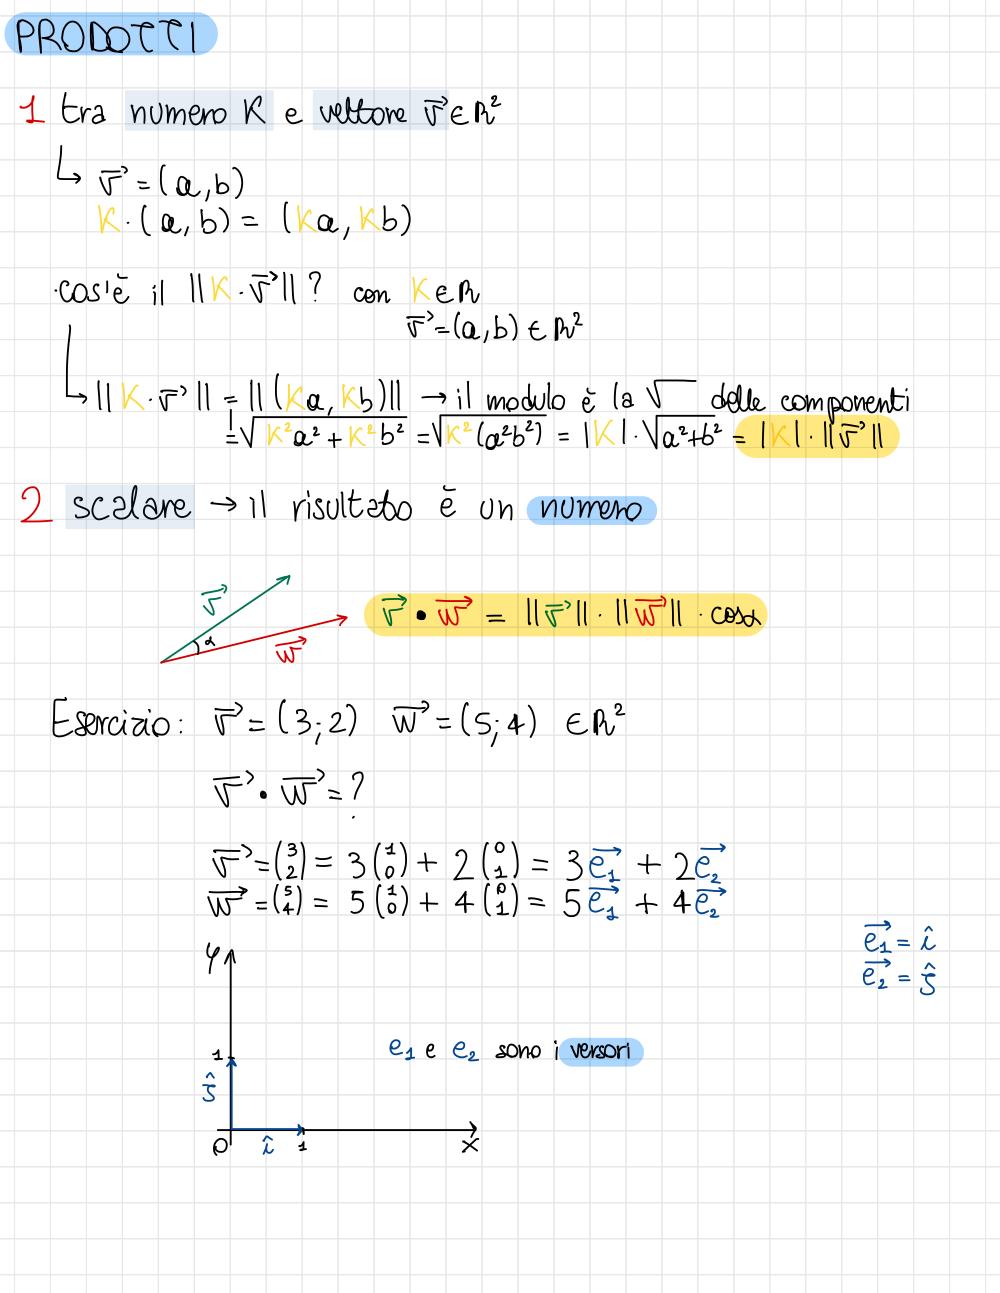 PRODOTTI
1 tra numero K e vettore v⃗ ∈ R²
v⃗ = (a, b)
K · (a, b) = (Ka, Kb)
· cos'è il ||K · v⃗|| ? con K ∈ R
v⃗ = (a, b) ∈ R²
||K · v⃗|| = ||(Ka, Kb)|| → il modulo è la √ delle componenti
= √(K²a² + K²b²) = √(K²(a²b²)) = |K| · √(a²+b²) = |K| · ||v⃗||
2 scalare → il risultato è un numero
v⃗
α
w⃗
v⃗ • w⃗ = ||v⃗|| · ||w⃗|| · cosα
Esercizio: v⃗ = (3; 2) w⃗ = (5; 4) ∈ R²
v⃗ • w⃗ = ?
v⃗ = (3 2) = 3 (1 0) + 2 (0 1) = 3 e₁⃗ + 2 e₂⃗
w⃗ = (5 4) = 5 (1 0) + 4 (0 1) = 5 e₁⃗ + 4 e₂⃗
e₁⃗ = î
e₂⃗ = ĵ
y
e₁ e e₂ sono i versori
1
ĵ
0 î 1 x